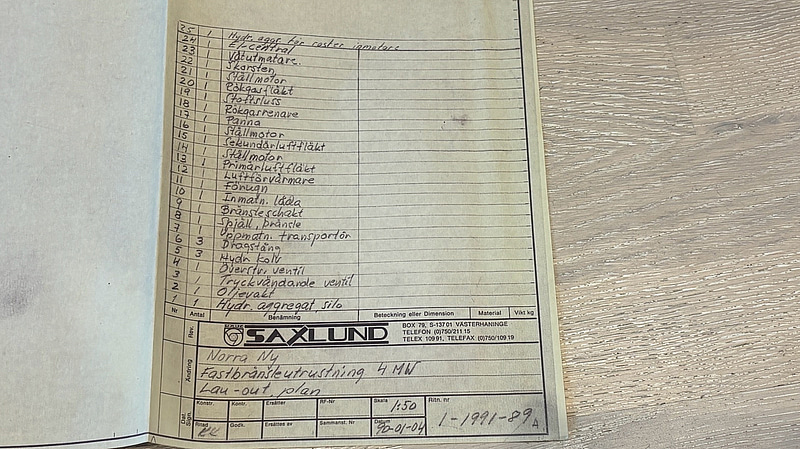 25 1 Hydr. aggr för roster inmatare
24 1 El-central
23 1 Våtutmatare.
22 1 Skorsten
21 1 Ställmotor
20 1 Rökgasfläkt
19 1 Stoftsluss
18 1 Rökgasrenare
17 1 Panna
16 1 Ställmotor
15 1 Sekundärluftfläkt
14 1 Ställmotor
13 1 Primärluftfläkt
12 1 Luftförvärmare
11 1 Förugn
10 1 Inmatn. låda
9 1 Bränsleschakt
8 1 Spjäll, bränsle
7 1 Uppmatn. transportör
6 3 Dragstång
5 3 Hydr kolv
4 1 Överstr. ventil
3 1 Tryckvändande ventil
2 1 Oljevakt
1 1 Hydr. aggregat, silo
Nr Antal Benämning Beteckning eller Dimension Material Vikt kg
Rev.
SAXLUND
BOX 79, S-137 01 VÄSTERHANINGE
TELEFON (0)750/211 15
TELEX 109 91, TELEFAX (0)750/109 19
Ändring
Norra Ny
Fastbränsleutrustning 4 MW
Lay-out plan
Dat. Sign.
Konstr. Kontr. Ersätter RF-Nr Skala 1:50 Ritn. nr
Ritad Godk. Ersättes av Sammanst. Nr Datum 90-01-04 1-1991-89 A